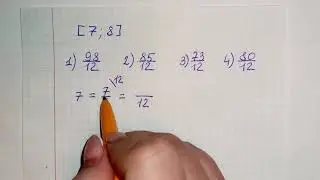 [7; 8]
1) 98/12 2) 85/12 3) 73/12 4) 80/12
7 = 7\12 = /12